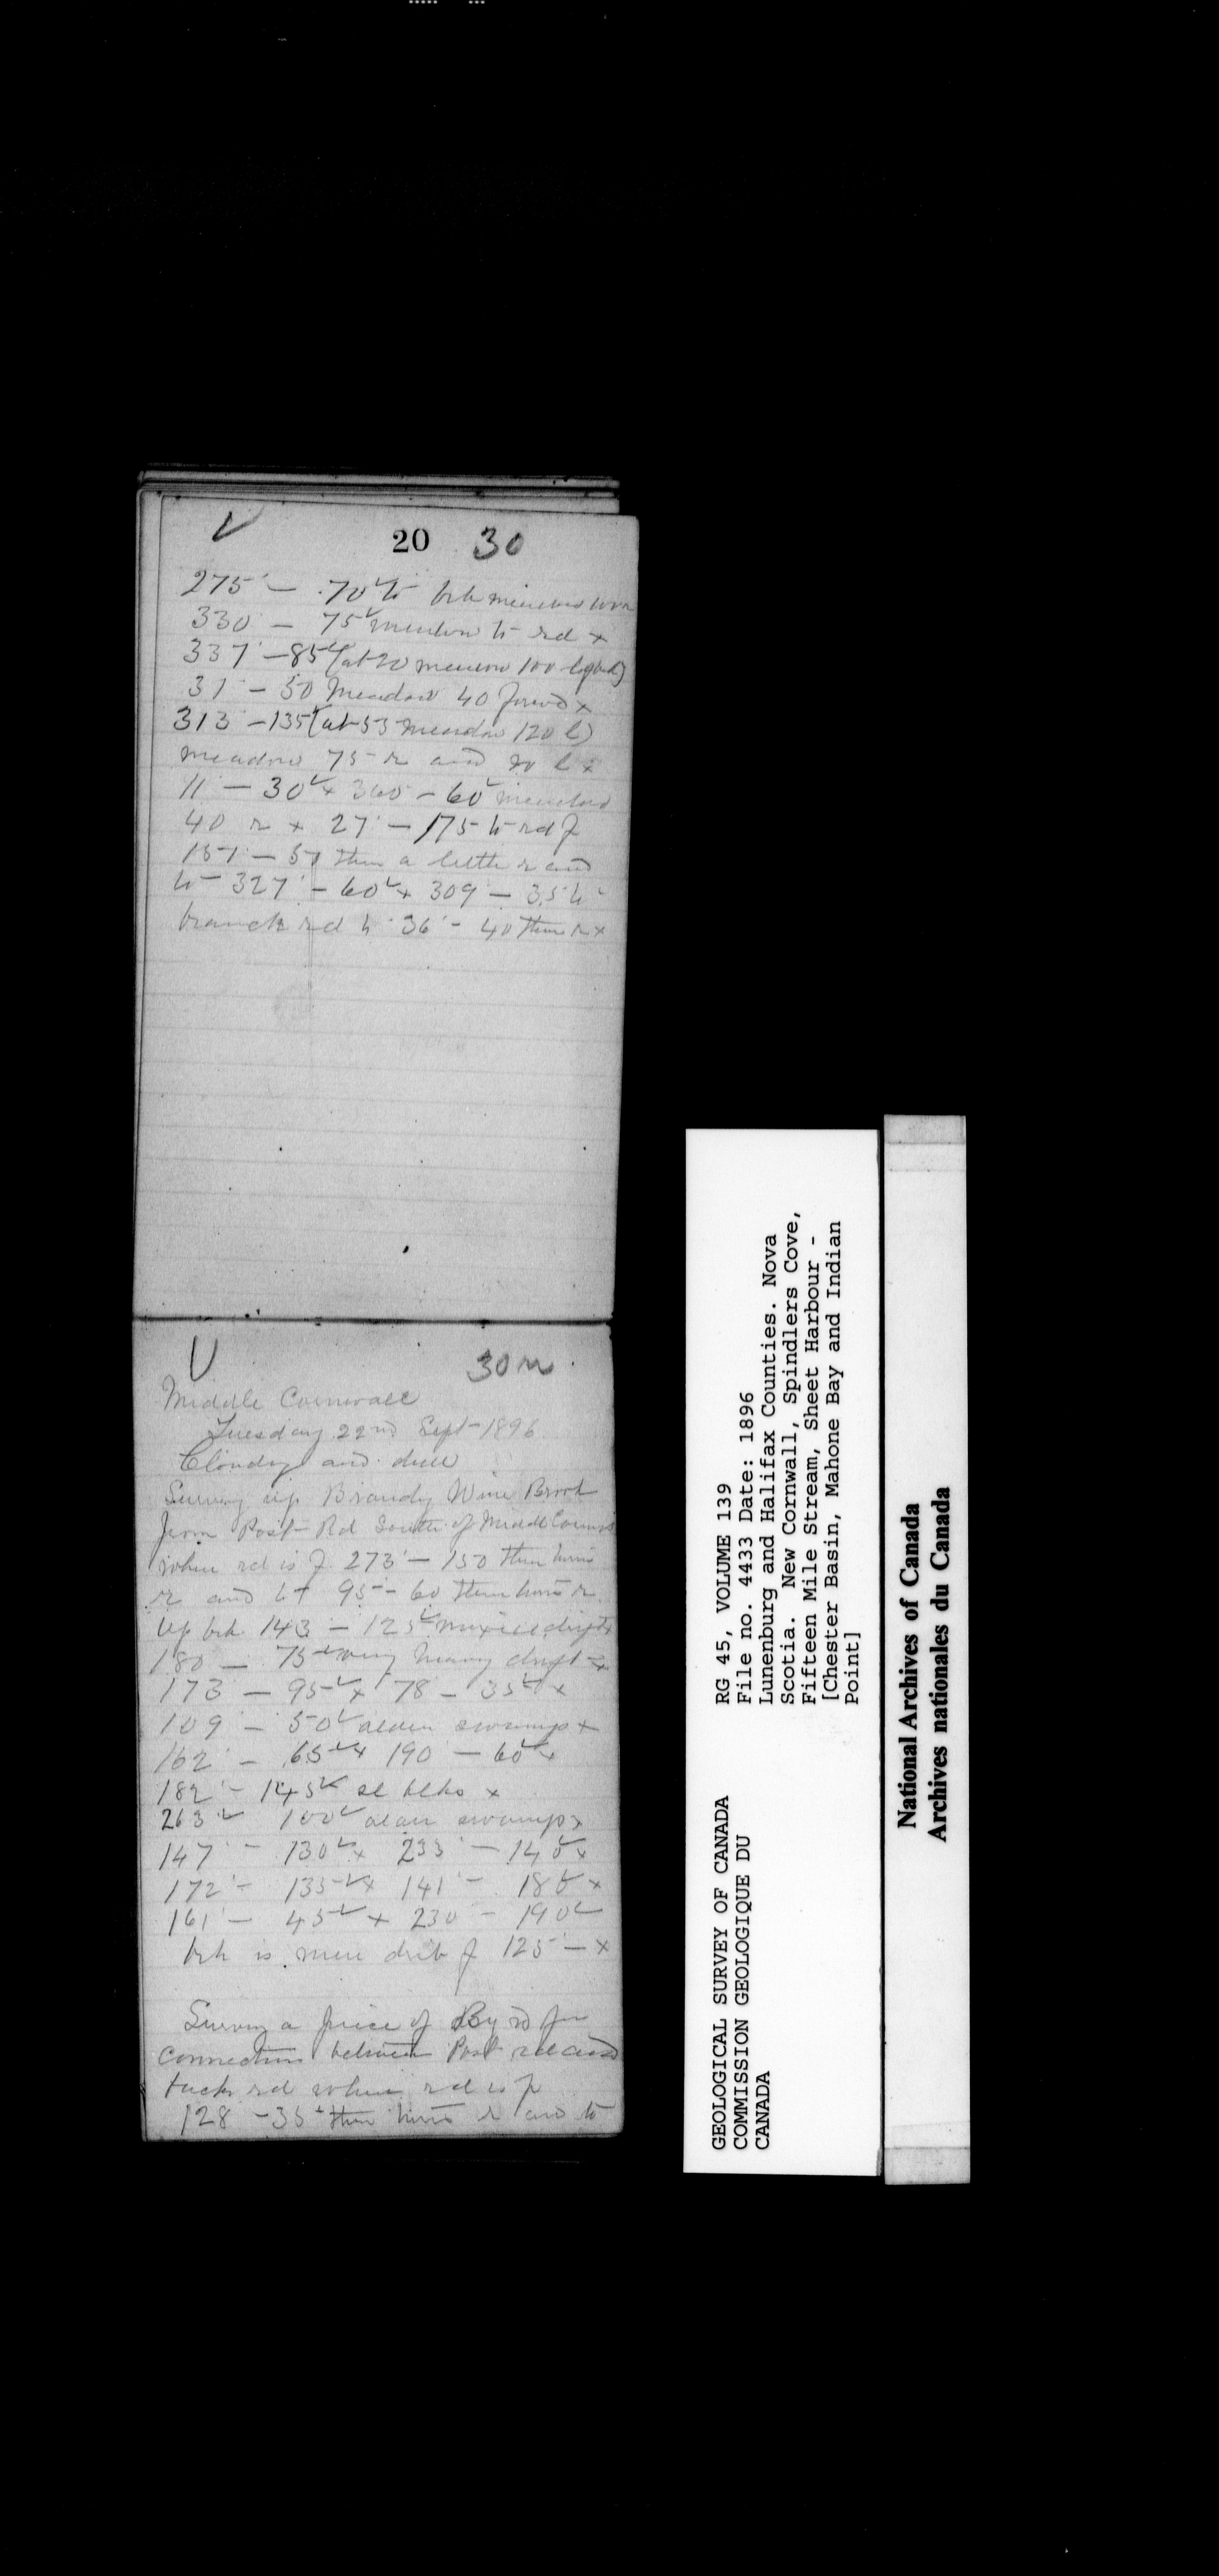 20 30
275° – 70 to brk meadow 100 r
330 – 75 meadow to rd x
337° – 85 (at 20 meadow 100 l
31° – 50 Meadow 40 x
313 – 135 (at 53 meadow 120 l)
meadow 75 r and 20 l x
11° – 30 x 360 – 60 meadow
40 r x 27° – 175 to rd f
157° – 51 then a little r and
to 327° – 60 x 309° – 35 to
branch rd 36° – 40 then r x
30 r
Middle Cornwall
Tuesday 22nd Sept 1896
Cloudy and dull
Survey up Brandy Wine Brook
from Post Rd South of Middle
when rd is f 273° – 150 then turns
r and to 95° – 60 then turns r
up brk 143 – 125
180 – 75 very heavy drift x
173 – 95 x 78 – 35 x
109 – 50 alder swamp x
162° – 65 x 190 – 60 x
182° – 145 sl blks x
263 100 alder swamp x
147° – 130 x 233° – 140 x
172° – 135 x 141° – 180 x
161° – 45 x 230° – 190
brk is mere f 125° – x
Survey a piece of By rd for
connection between Post rd and
back rd where rd is f
128 – 35 then turns r and to
GEOLOGICAL SURVEY OF CANADA
COMMISSION GEOLOGIQUE DU
CANADA
RG 45, VOLUME 139
File no. 4433 Date: 1896
Lunenburg and Halifax Counties. Nova
Scotia. New Cornwall, Spindlers Cove,
Fifteen Mile Stream, Sheet Harbour -
[Chester Basin, Mahone Bay and Indian
Point]
National Archives of Canada
Archives nationales du Canada